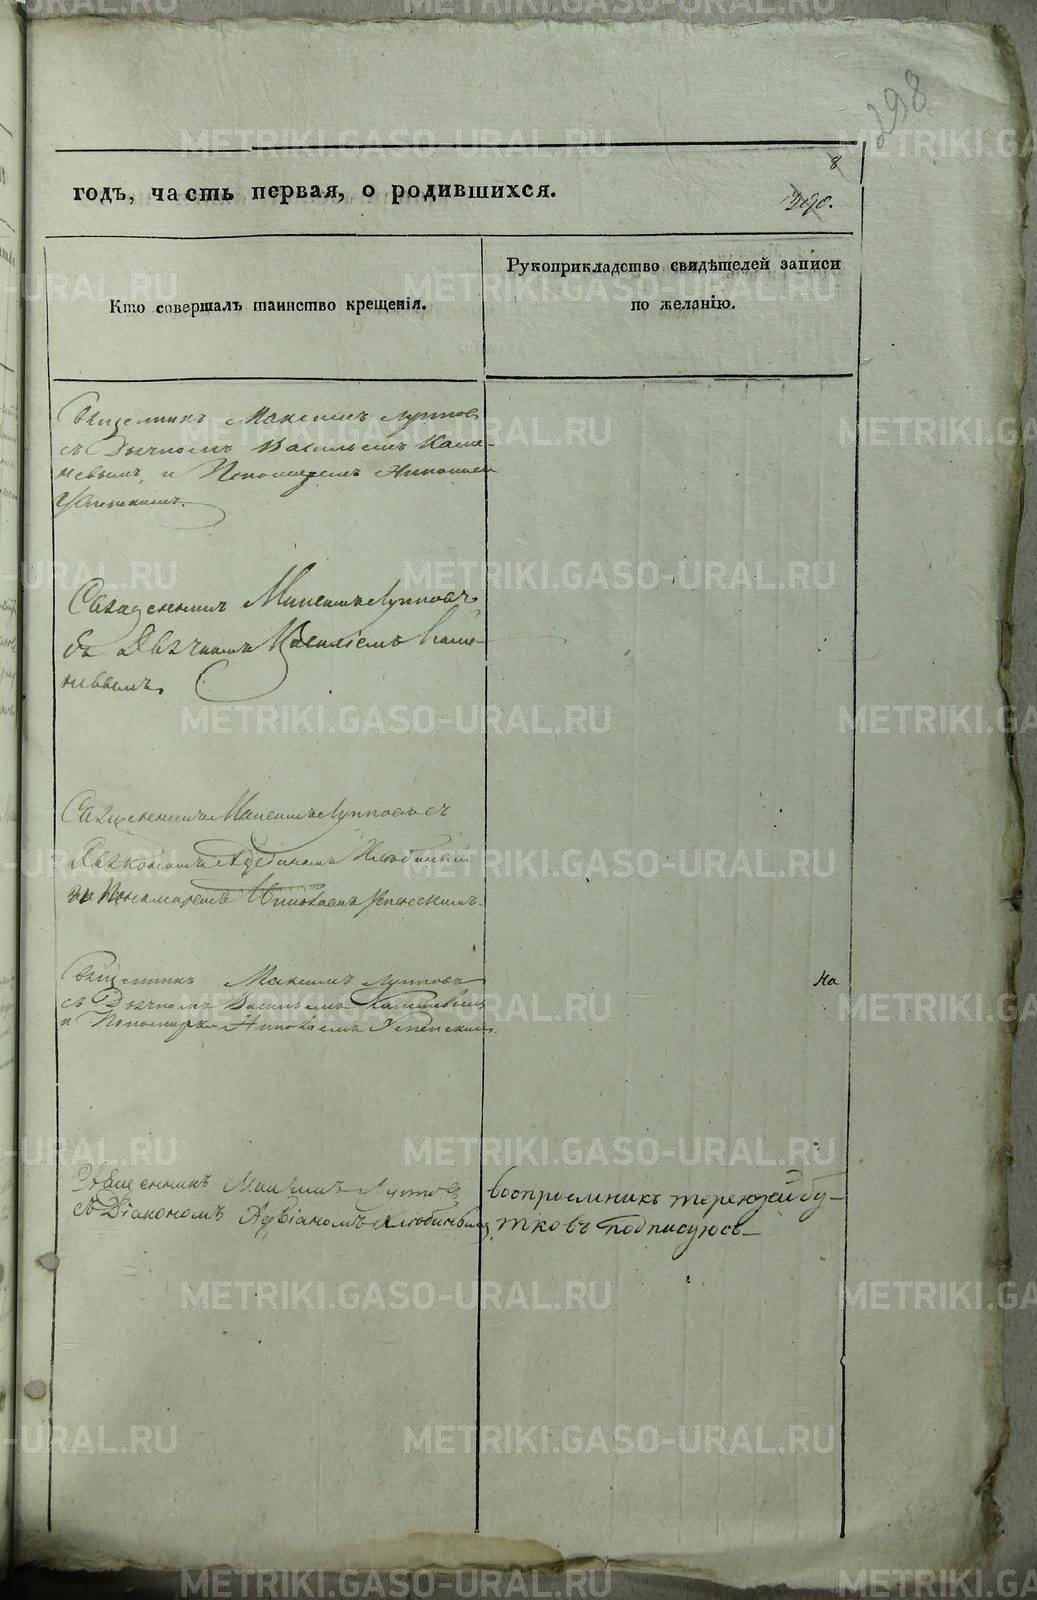 298
8
годъ, часть первая, о родившихся.
Кто совершалъ таинство крещенія.
Рукоприкладство свидѣтелей записи
по желанію.
Священникъ Максимъ Лупповъ
съ Дьячкомъ Васильемъ Каме-
невымъ, и Пономаремъ Николаем
Успенскимъ.
Священникъ Максимъ Лупповъ
съ Дьячкомъ Василіемъ Каме-
невымъ.
Священникъ Максимъ Лупповъ съ
Дьякономъ Адріаномъ Клюбиным
и Пономаремъ Николаемъ Успенскимъ.
Священникъ Максимъ Лупповъ
съ Дьячкомъ Васильемъ Каменевымъ
и Пономаремъ Николаемъ Успенским.
На
Священникъ Максимъ Луппов
съ Діакономъ Адріаномъ Клюбинымъ
воспріемникъ терентей бу-
тковъ подписуюсь
METRIKI.GASO-URAL.RU